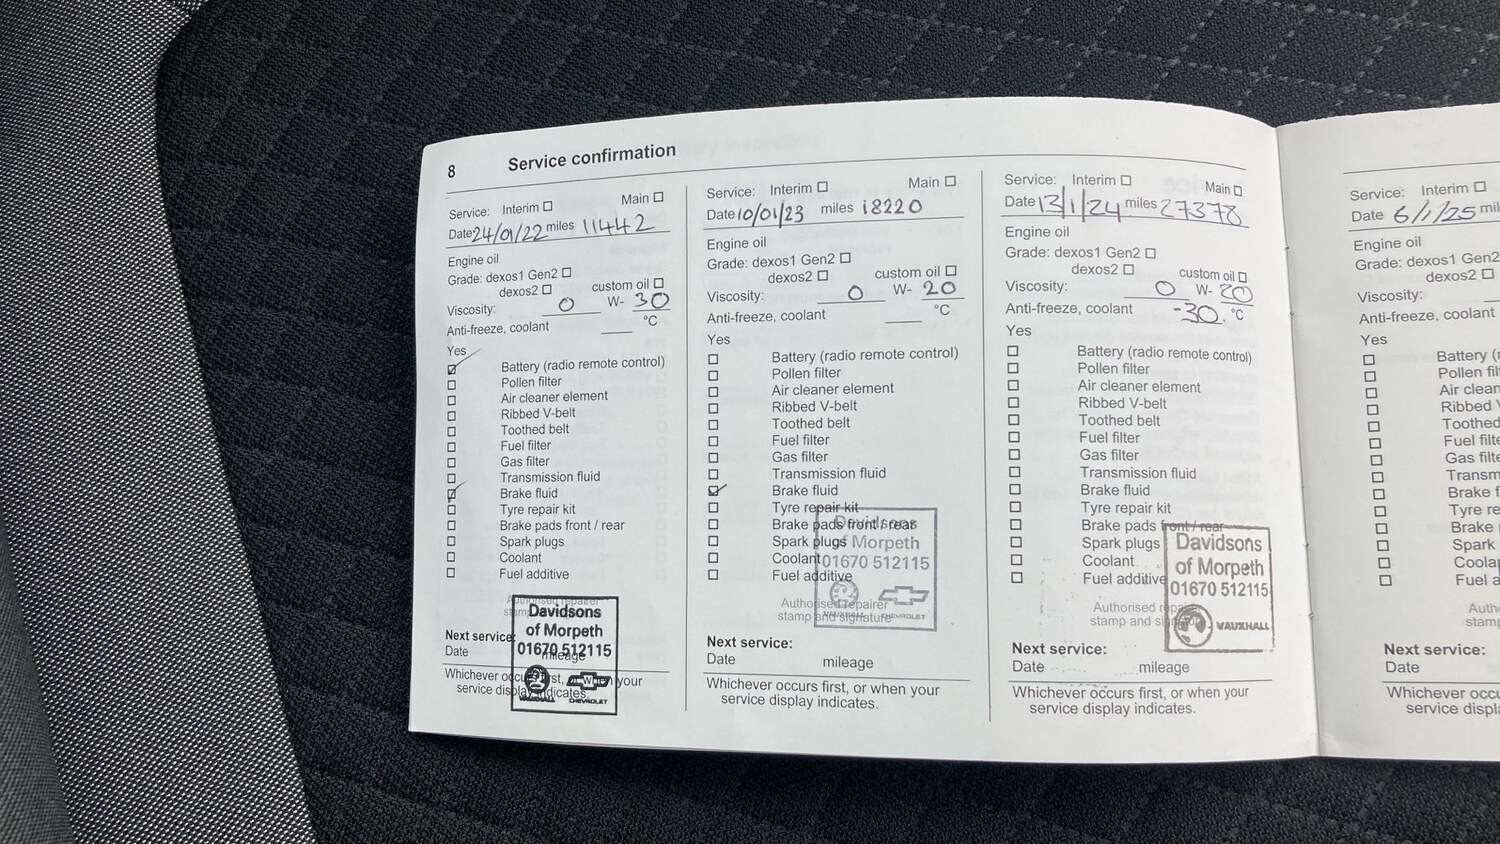 8 Service confirmation
Service: Interim Main
Date 24/01/22 miles 11442
Engine oil
Grade: dexos1 Gen2
dexos2 custom oil
Viscosity: 0 W- 30
Anti-freeze, coolant °C
Yes
Battery (radio remote control)
Pollen filter
Air cleaner element
Ribbed V-belt
Toothed belt
Fuel filter
Gas filter
Transmission fluid
Brake fluid
Tyre repair kit
Brake pads front / rear
Spark plugs
Coolant
Fuel additive
Authorised repairer
Davidsons
of Morpeth
01670 512115
VAUXHALL CHEVROLET
Next service:
Date mileage
Whichever occurs first, or when your
service display indicates.
Service: Interim Main
Date 10/01/23 miles 18220
Engine oil
Grade: dexos1 Gen2
dexos2 custom oil
Viscosity: 0 W- 20
Anti-freeze, coolant °C
Yes
Battery (radio remote control)
Pollen filter
Air cleaner element
Ribbed V-belt
Toothed belt
Fuel filter
Gas filter
Transmission fluid
Brake fluid
Tyre repair kit
Brake pads front / rear
Spark plugs
Coolant
Fuel additive
Davidsons
of Morpeth
01670 512115
VAUXHALL CHEVROLET
Authorised repairer
stamp and signature
Next service:
Date mileage
Whichever occurs first, or when your
service display indicates.
Service: Interim Main
Date 13/1/24 miles 27378
Engine oil
Grade: dexos1 Gen2
dexos2 custom oil
Viscosity: 0 W- 20
Anti-freeze, coolant -30. °C
Yes
Battery (radio remote control)
Pollen filter
Air cleaner element
Ribbed V-belt
Toothed belt
Fuel filter
Gas filter
Transmission fluid
Brake fluid
Tyre repair kit
Brake pads front / rear
Spark plugs
Coolant
Fuel additive
Davidsons
of Morpeth
01670 512115
VAUXHALL
Authorised repairer
stamp and
Next service:
Date mileage
Whichever occurs first, or when your
service display indicates.
Service: Interim
Date 6/1/25 mil
Engine oil
Grade: dexos1 Gen2
dexos2
Viscosity:
Anti-freeze, coolant
Yes
Battery (
Pollen fil
Air clean
Ribbed V
Toothed
Fuel filte
Gas filte
Transm
Brake f
Tyre re
Brake
Spark
Coola
Fuel a
Auth
stam
Next service:
Date
Whichever occu
service displ